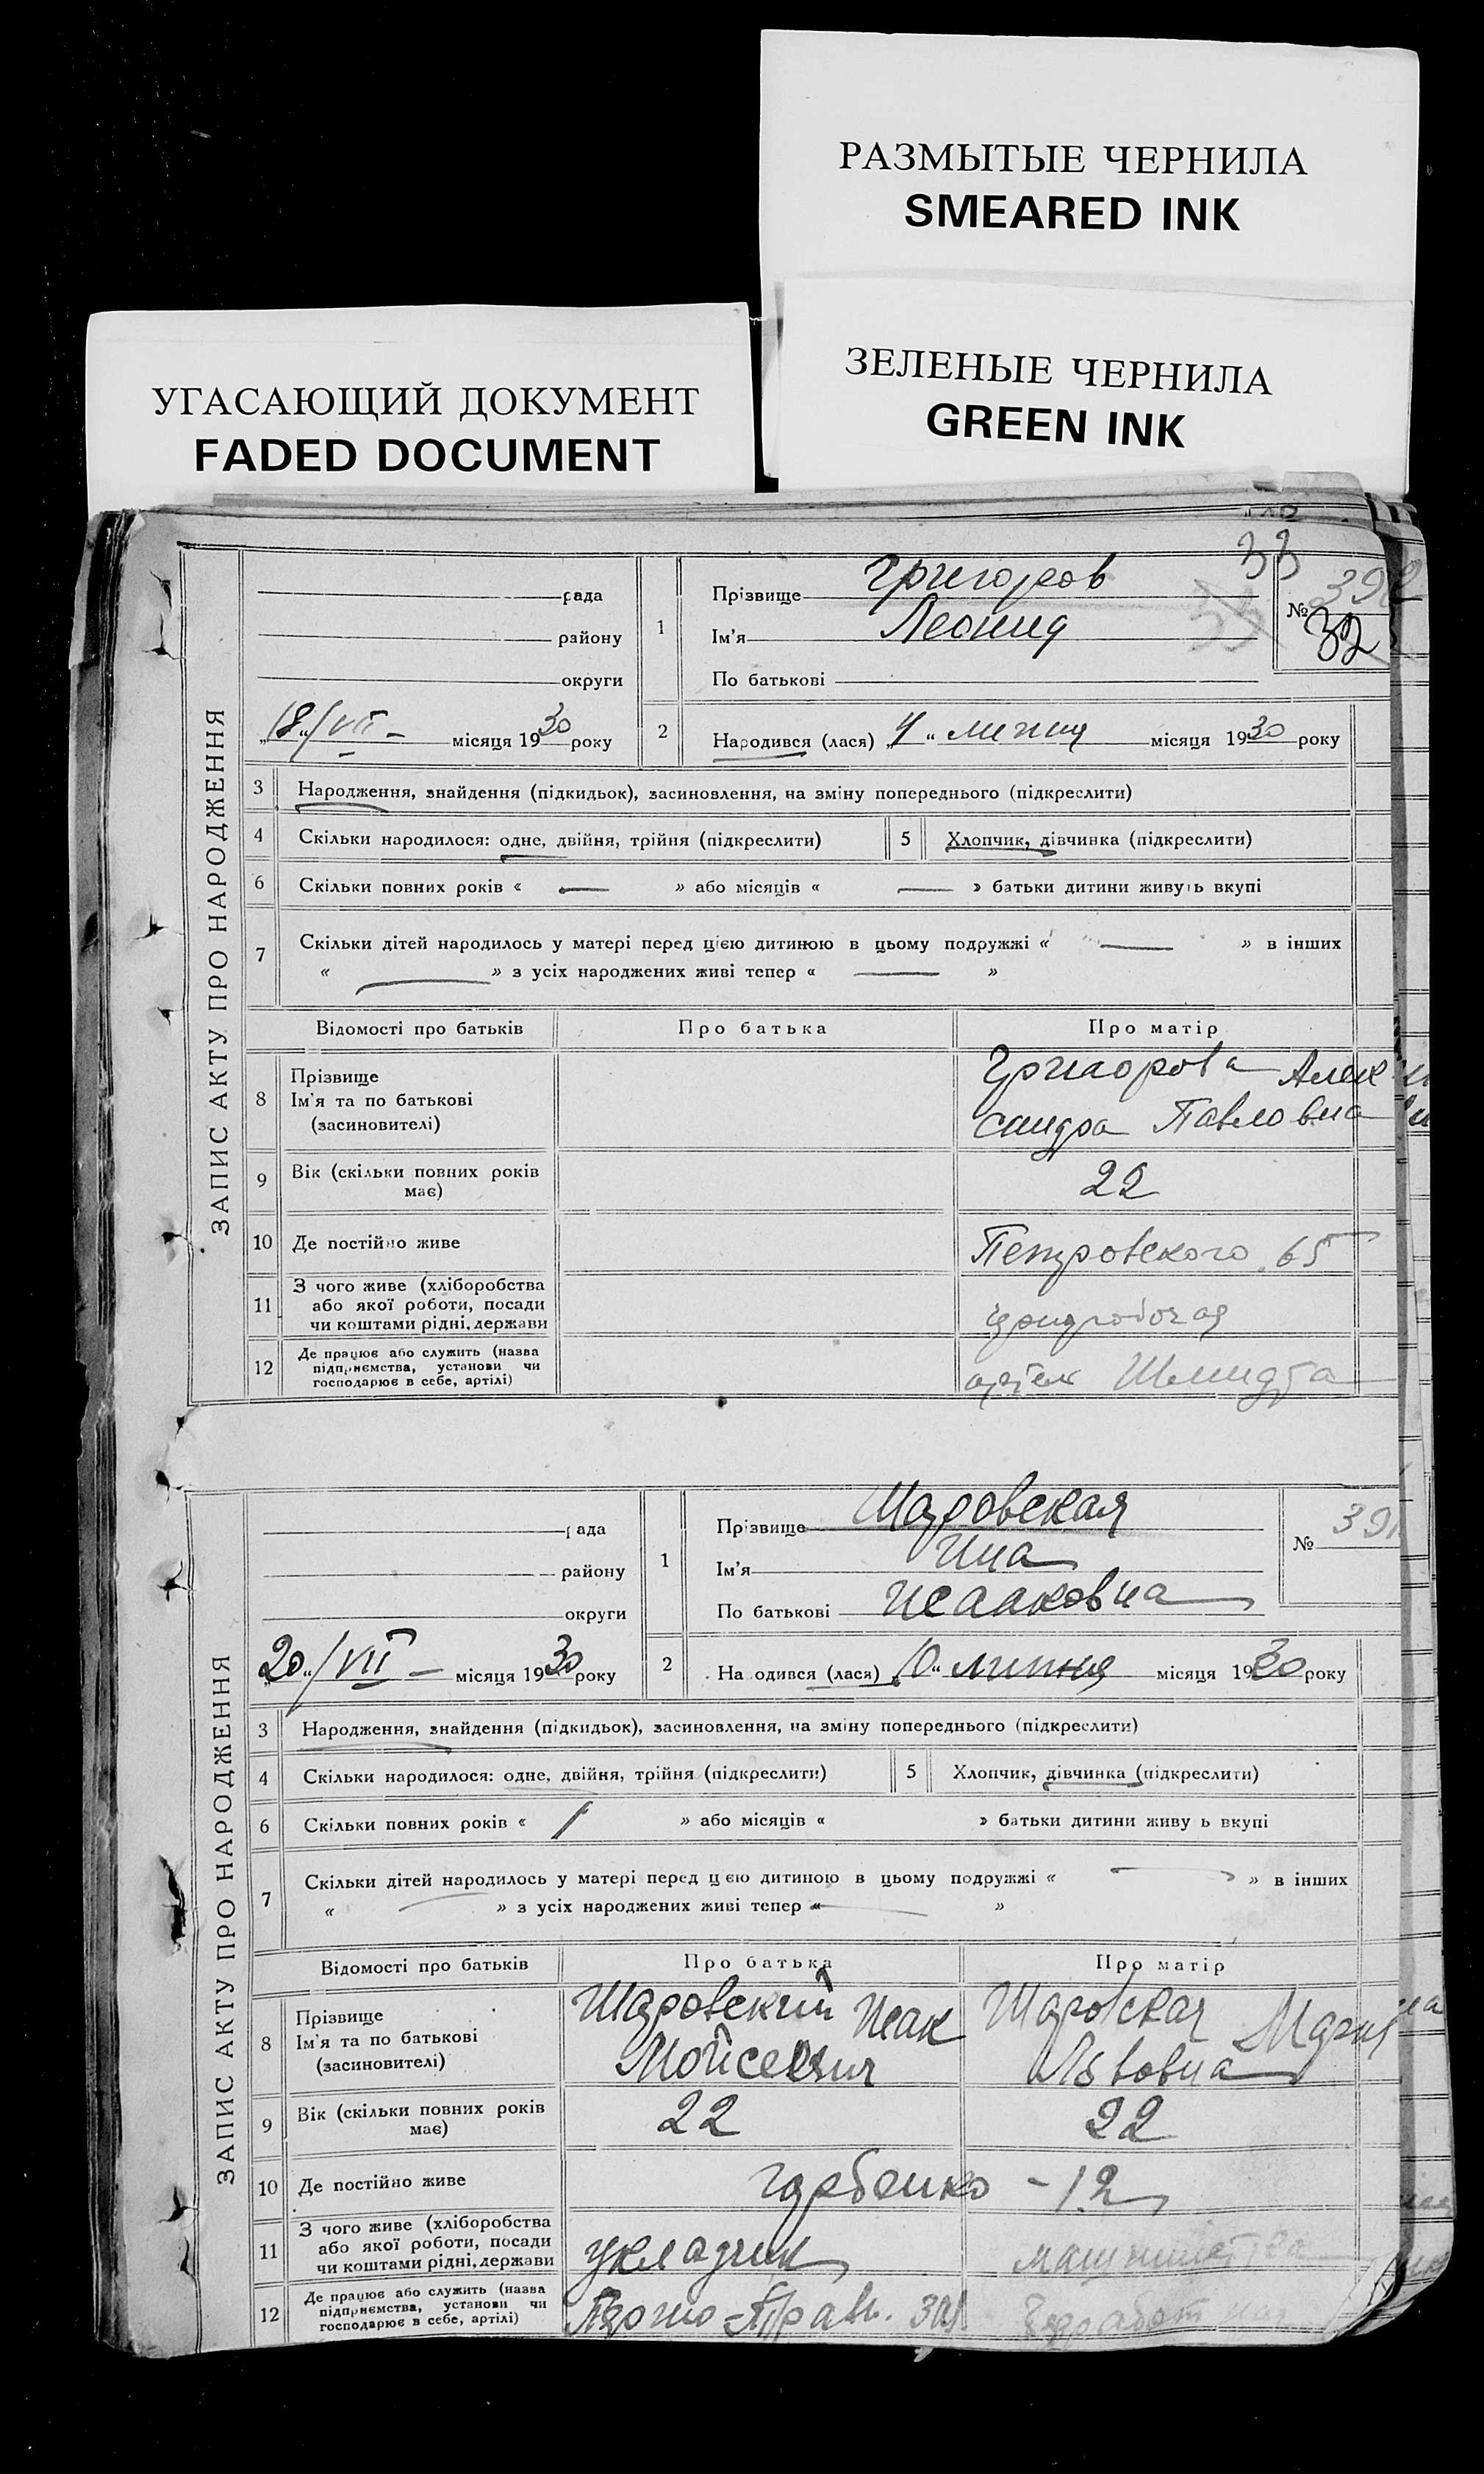 РАЗМЫТЫЕ ЧЕРНИЛА
SMEARED INK
ЗЕЛЕНЫЕ ЧЕРНИЛА
GREEN INK
УГАСАЮЩИЙ ДОКУМЕНТ
FADED DOCUMENT
33
ЗАПИС АКТУ ПРО НАРОДЖЕННЯ
рада
району
округи
„18“/VII – місяця 1930 року
1 Прізвище Григоров
Ім'я Леонид
По батькові
№ 392
32
2 Народився (лася) „4“ липня місяця 1930 року
3 Народження, знайдення (підкидьок), засиновлення, на зміну попереднього (підкреслити)
4 Скільки народилося: одне, двійня, трійня (підкреслити) 5 Хлопчик, дівчинка (підкреслити)
6 Скільки повних років « — » або місяців « — » батьки дитини живуть вкупі
7 Скільки дітей народилось у матері перед цією дитиною в цьому подружжі « — » в інших
« — » з усіх народжених живі тепер « — »
Відомості про батьків Про батька Про матір
8 Прізвище
Ім'я та по батькові
(засиновителі)
Григорова Алек
сандра Павловна
9 Вік (скільки повних років
має)
22
10 Де постійно живе Петровского 65
11 З чого живе (хліборобства
або якої роботи, посади
чи коштами рідні, держави
12 Де працює або служить (назва
підприємства, установи чи
господарює в себе, артілі)
Шмидта
ЗАПИС АКТУ ПРО НАРОДЖЕННЯ
рада
району
округи
„20“/VII – місяця 1930 року
1 Прізвище Шаровская
Ім'я Инна
По батькові Исааковна
№ 391
2 Народився (лася) „10“ липня місяця 1930 року
3 Народження, знайдення (підкидьок), засиновлення, на зміну попереднього (підкреслити)
4 Скільки народилося: одне, двійня, трійня (підкреслити) 5 Хлопчик, дівчинка (підкреслити)
6 Скільки повних років « 1 » або місяців « » батьки дитини живуть вкупі
7 Скільки дітей народилось у матері перед цією дитиною в цьому подружжі « — » в інших
« — » з усіх народжених живі тепер « — »
Відомості про батьків Про батька Про матір
8 Прізвище
Ім'я та по батькові
(засиновителі)
Шаровский Исак
Мойсевич
Шаровская Мария
Львовна
9 Вік (скільки повних років
має)
22 22
10 Де постійно живе Горбенко – 12
11 З чого живе (хліборобства
або якої роботи, посади
чи коштами рідні, держави
укладчик
12 Де працює або служить (назва
підприємства, установи чи
господарює в себе, артілі)